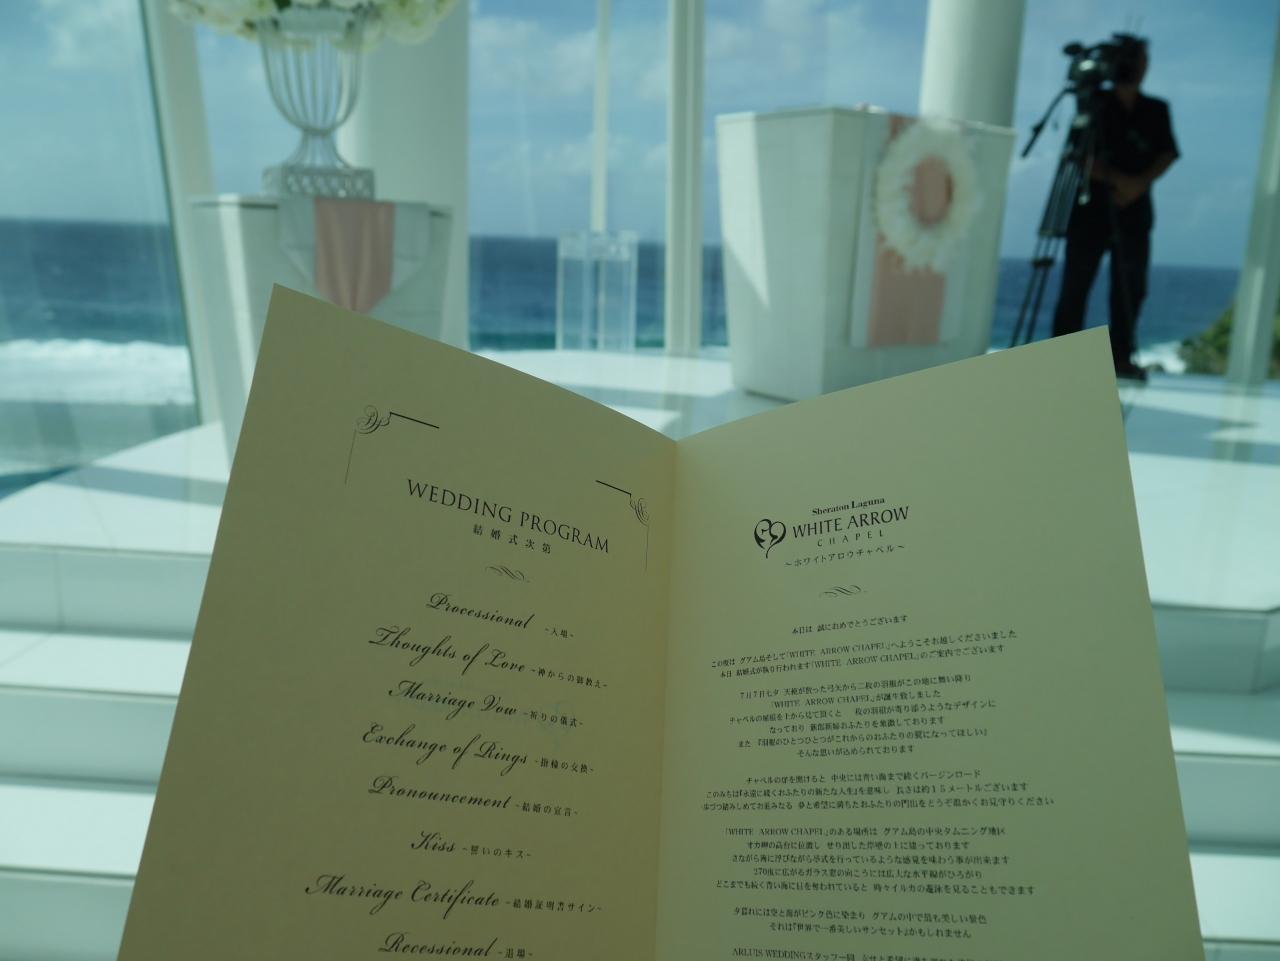 WEDDING PROGRAM
結婚式次第
Processional ~入場~
Thoughts of Love ~神からの御教え~
Marriage Vow ~祈りの儀式~
Exchange of Rings ~指輪の交換~
Pronouncement ~結婚の宣言~
Kiss ~誓いのキス~
Marriage Certificate ~結婚証明書サイン~
Recessional ~退場~
Sheraton Laguna
WHITE ARROW
CHAPEL
~ホワイトアロウチャペル~
本日は 誠におめでとうございます
この度は グアム島そして「WHITE ARROW CHAPEL」へようこそお越しくださいました
本日 結婚式が執り行われます「WHITE ARROW CHAPEL」のご案内でございます
7月7日七夕 天使が放った弓矢から二枚の羽根がこの地に舞い降り
「WHITE ARROW CHAPEL」が誕生致しました
チャペルの屋根を上から見て頂くと 枚の羽根が寄り添うようなデザインに
なっており 新郎新婦おふたりを象徴しております
また 『羽根のひとつひとつがこれからのおふたりの翼になってほしい』
そんな思いが込められております
チャペルの扉を開けると 中央には青い海まで続くバージンロード
このみちは『永遠に続くおふたりの新たな人生』を意味し 長さは約15メートルございます
歩づつ踏みしめてお進みなる 夢と希望に満ちたおふたりの門出をどうぞ温かくお見守りください
「WHITE ARROW CHAPEL」のある場所は グアム島の中央タムニング地区
オカ岬の高台に位置し せり出した岸壁の上に建っております
さながら海に浮びながら挙式を行っているような感覚を味わう事が出来ます
270度に広がるガラス窓の向こうには広大な水平線がひろがり
どこまでも続く青い海に目を奪われていると 時々イルカの遊泳を見ることもできます
夕暮れには空と海がピンク色に染まり グアムの中で最も美しい景色
それは『世界で一番美しいサンセット』かもしれません
ARLUIS WEDDINGスタッフ一同